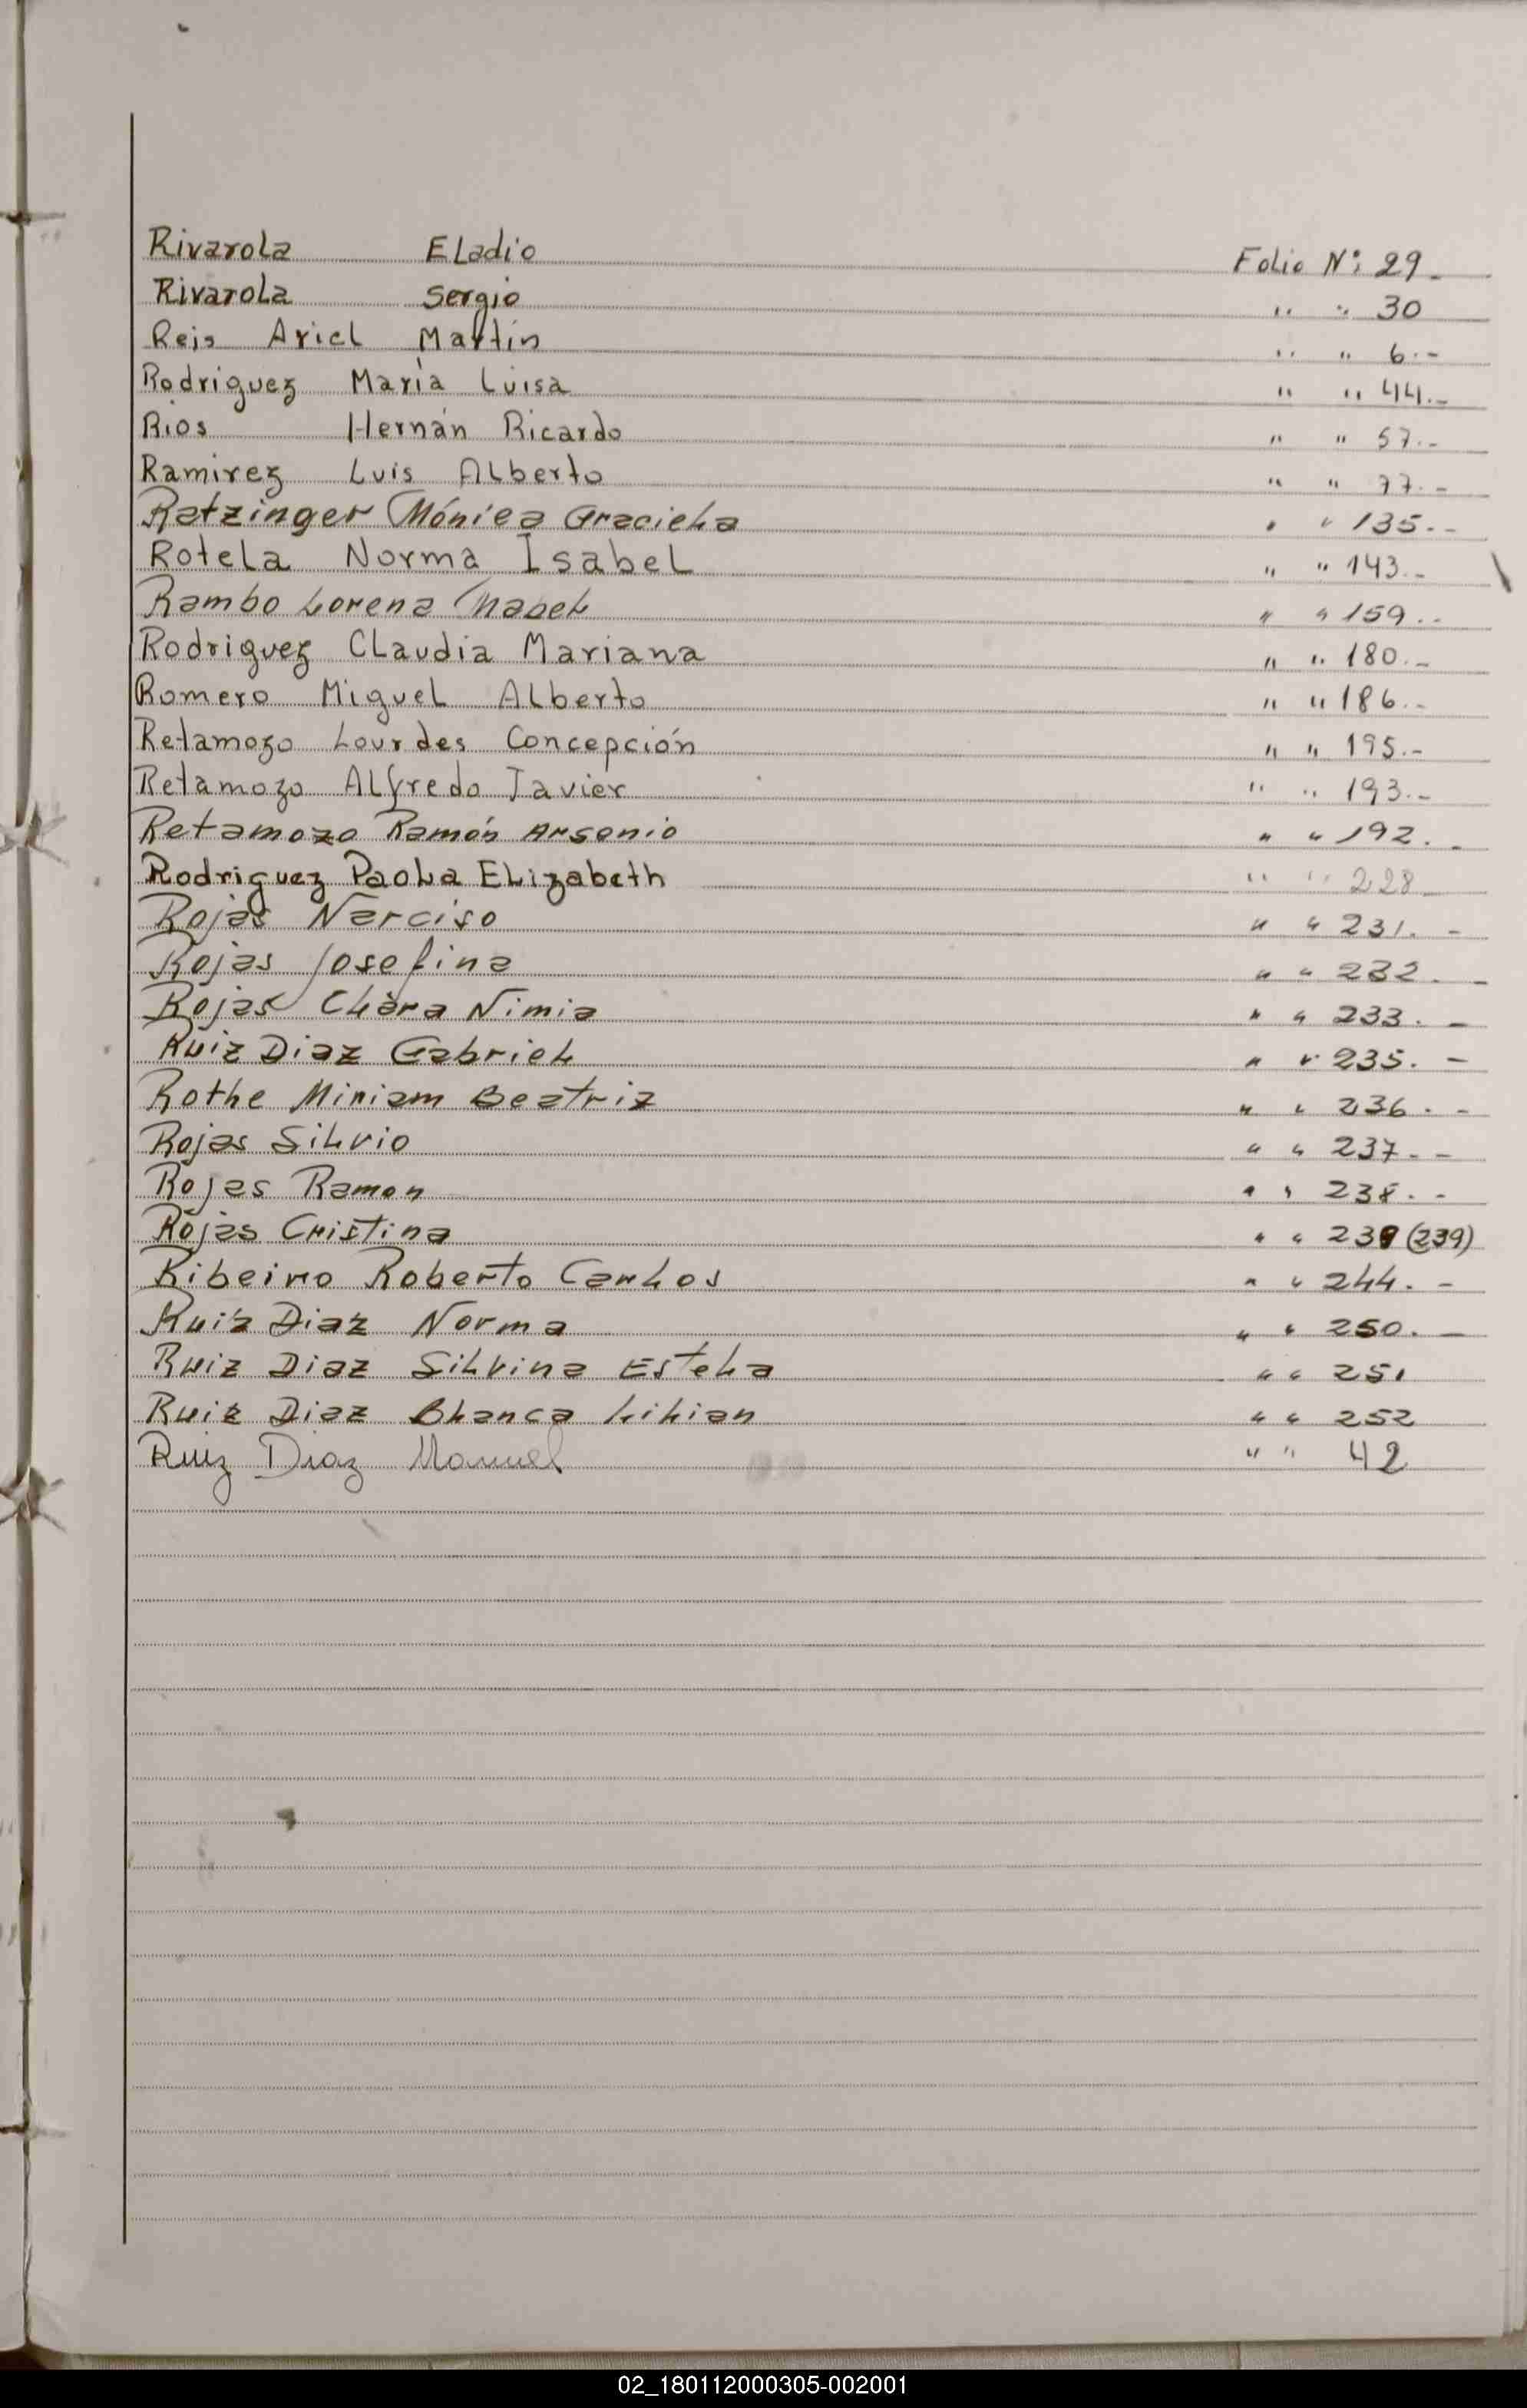 Rivarola Eladio Folio Nº: 29_
Rivarola Sergio " " 30
Reis Ariel Martín " " 6.-
Rodriguez María Luisa " " 44.-
Rios Hernán Ricardo " " 57.-
Ramirez Luis Alberto " " 77.-
Ratzinger Mónica Graciela " " 135.-
Rotela Norma Isabel " " 143.-
Rambo Lorena Mabel " " 159.-
Rodriguez Claudia Mariana " " 180.-
Romero Miguel Alberto " " 186.-
Retamozo Lourdes Concepción " " 195.-
Retamozo Alfredo Javier " " 193.-
Retamozo Ramón Arsenio " " 192.-
Rodriguez Paola Elizabeth " " 228_
Rojas Narciso " " 231.-
Rojas Josefina " " 232.-
Rojas Clara Nimia " " 233.-
Ruiz Diaz Gabriel " " 235.-
Rothe Miriam Beatriz " " 236.-
Rojas Silvio " " 237.-
Rojas Ramon " " 238.-
Rojas Cristina " " 239 (239)
Ribeiro Roberto Carlos " " 244.-
Ruiz Diaz Norma " " 250.-
Ruiz Diaz Silvina Estela " " 251
Ruiz Diaz Blanca Lilian " " 252
Ruiz Diaz Manuel " " 42
02_180112000305-002001